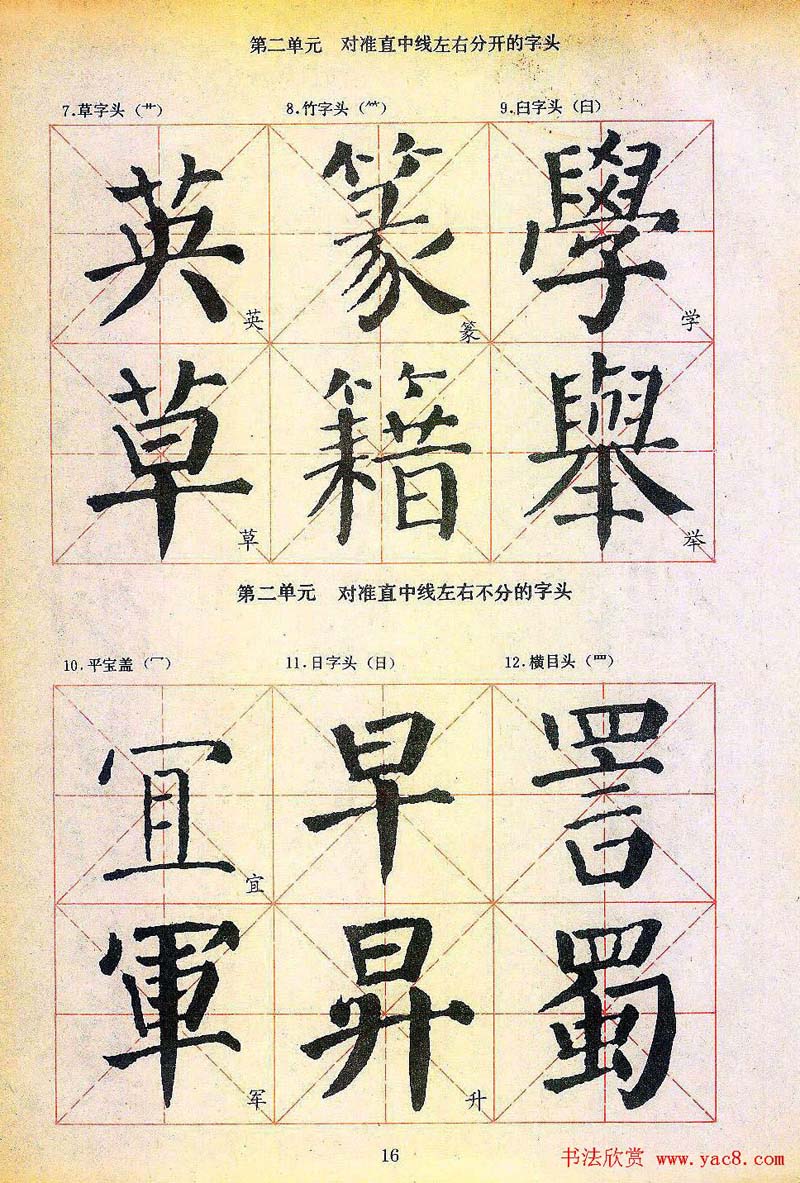 第二单元 对准直中线左右分开的字头
7.草字头（艹） 8.竹字头（⺮） 9.臼字头（臼）
英 篆 學
英 篆 学
草 籍 舉
草 举
第二单元 对准直中线左右不分的字头
10.平宝盖（冖） 11.日字头（日） 12.横目头（罒）
冝 早 詈
宜
軍 昇 蜀
军 升
16
书法欣赏 www.yac8.com